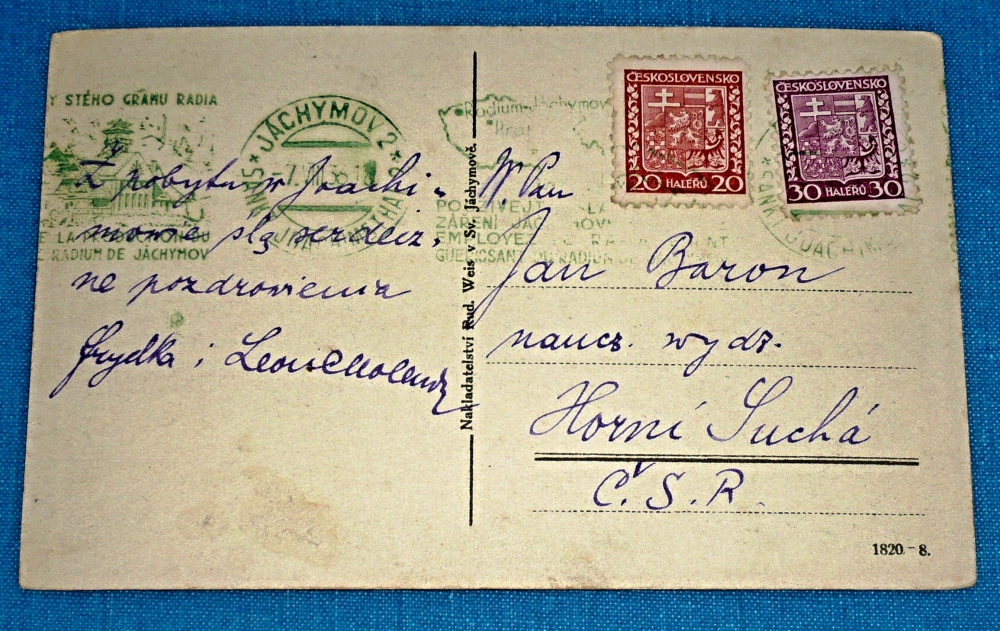 Y STÉHO GRAMU RADIA
E LA PRODUCTION DU
RADIUM DE JÁCHYMOV
JÁCHYMOV 2
Radium-Jáchymov
ZÁŘENÍ JÁCHYMOV
EMPLOYEZ
GUÉRISSANT DU RADIUM DE
ČESKOSLOVENSKO
20 HALÉŘŮ 20
ČESKOSLOVENSKO
30 HALÉŘŮ 30
SANKT JOACHIMS
Z pobytu w Joachi-
mowie ślą serdecz,
ne pozdrowienia
Frydka i Leon
Nakladatelství Rud. Weis v Sv. Jáchymově.
W. Pan
Jan Baron
naucz. wydz.
Horní Suchá
Č. S. R.
1820 - 8.